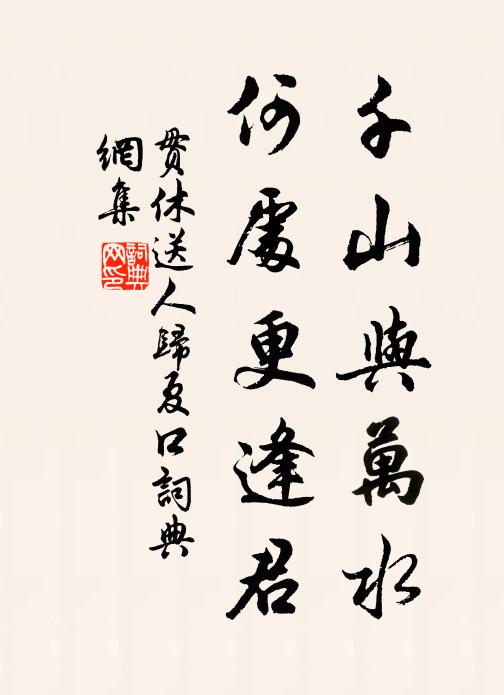 千山與萬水
何處更逢君
貫休送人歸夏口詞典
網集
詞典網印